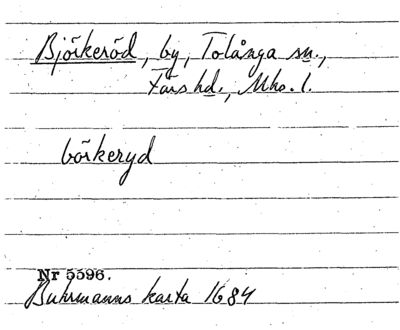 Björkeröd, by, Tolånga sn.,
Färs hd., Mhs. l.
börkeryd
Nr 5596.
Buhrmanns karta 1684